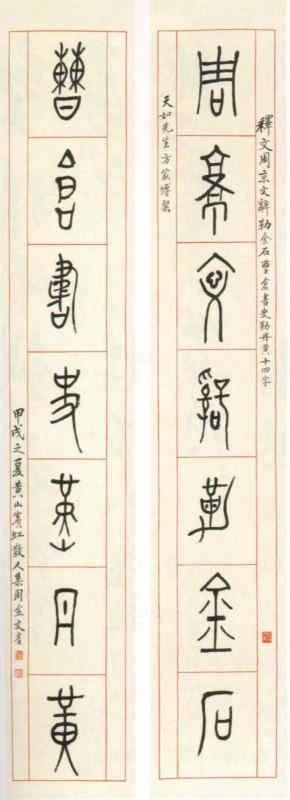 釋文周京文辭勒金石曹倉書史勤丹黃十四字
周京文辭勒金石
天如先生方家博粲
曹倉書史堇丹黃
甲戌之夏黃山賓虹散人集周金文書